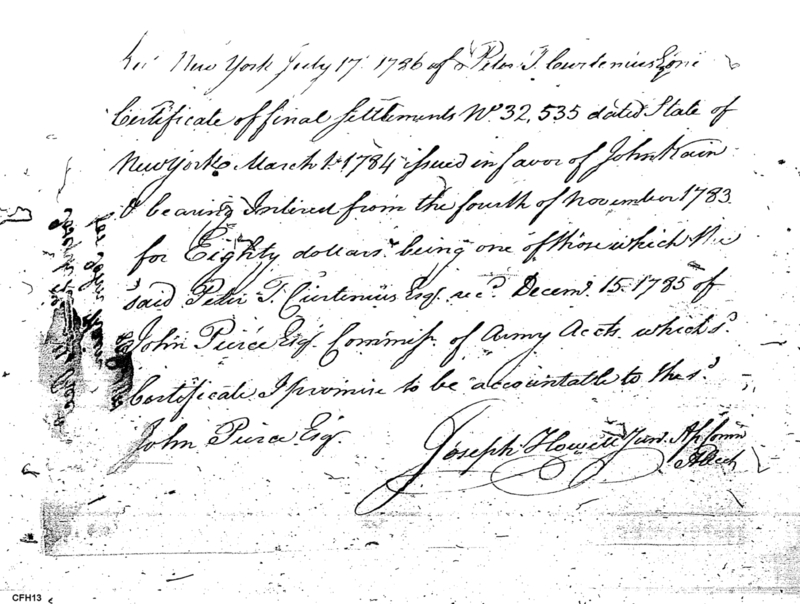 Rec'd New York July 17. 1786 of Peter T. Curtenius Esq. one
Certificate of final Settlements No 32,535 dated State of
New York March 1st 1784 issued in favor of John Kain
& bearing Interest from the fourth of November 1783
for Eighty dollars being one of those which the
said Peter T. Curtenius Esq. recd. Decemr. 15. 1785 of
John Pierce Esq. Commissr. of Army Accts. which sd.
Certificate I promise to be accountable to the sd.
John Pierce Esq.
Joseph Howell Junr. Ass Comm
CFH13